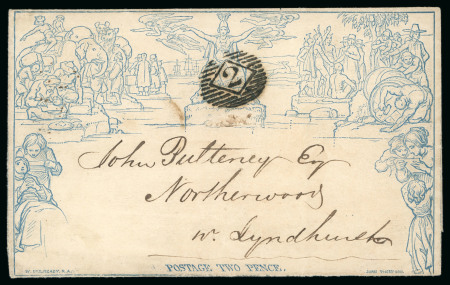 2
John Pulteney Esq
Northerwood
nr. Lyndhurst
POSTAGE TWO PENCE.
W. MULREADY, R.A.
JOHN THOMPSON